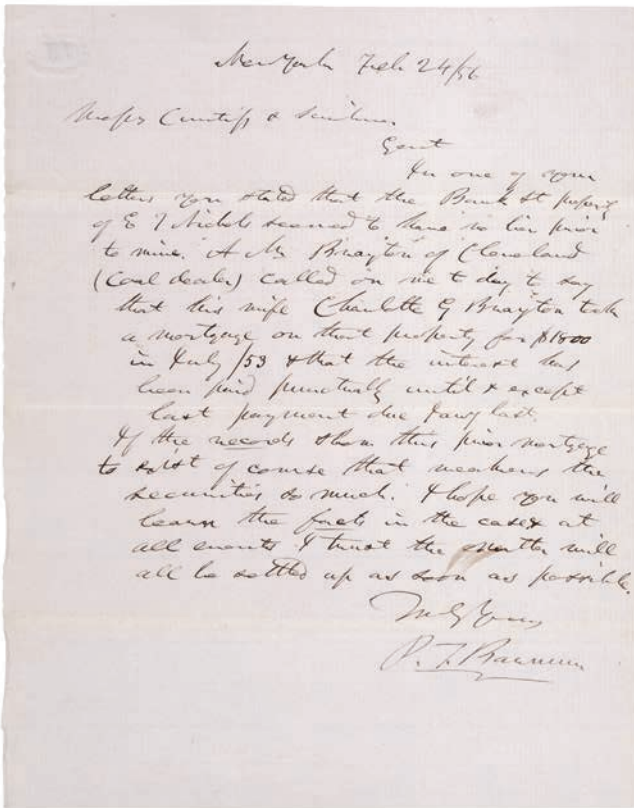 New York Feb 24/56
Messrs Curtiss &
Gent
In one of your
letters you stated that the Bank St property
of E T Nichols seemed to have no lien prior
to mine. A Mr Brayton of Cleveland
(Coal dealer) called on me to day to say
that his wife Charlotte G Brayton took
a mortgage on that property for $1800
in July /53 & that the interest has
been paid punctually until & except
last payment due Jany last.
If the records show this prior mortgage
to exist of course that weakens the
securities so much. I hope you will
learn the facts in the case & at
all events I trust the matter will
all be settled up as soon as possible.
Truly Yours
P. T. Barnum